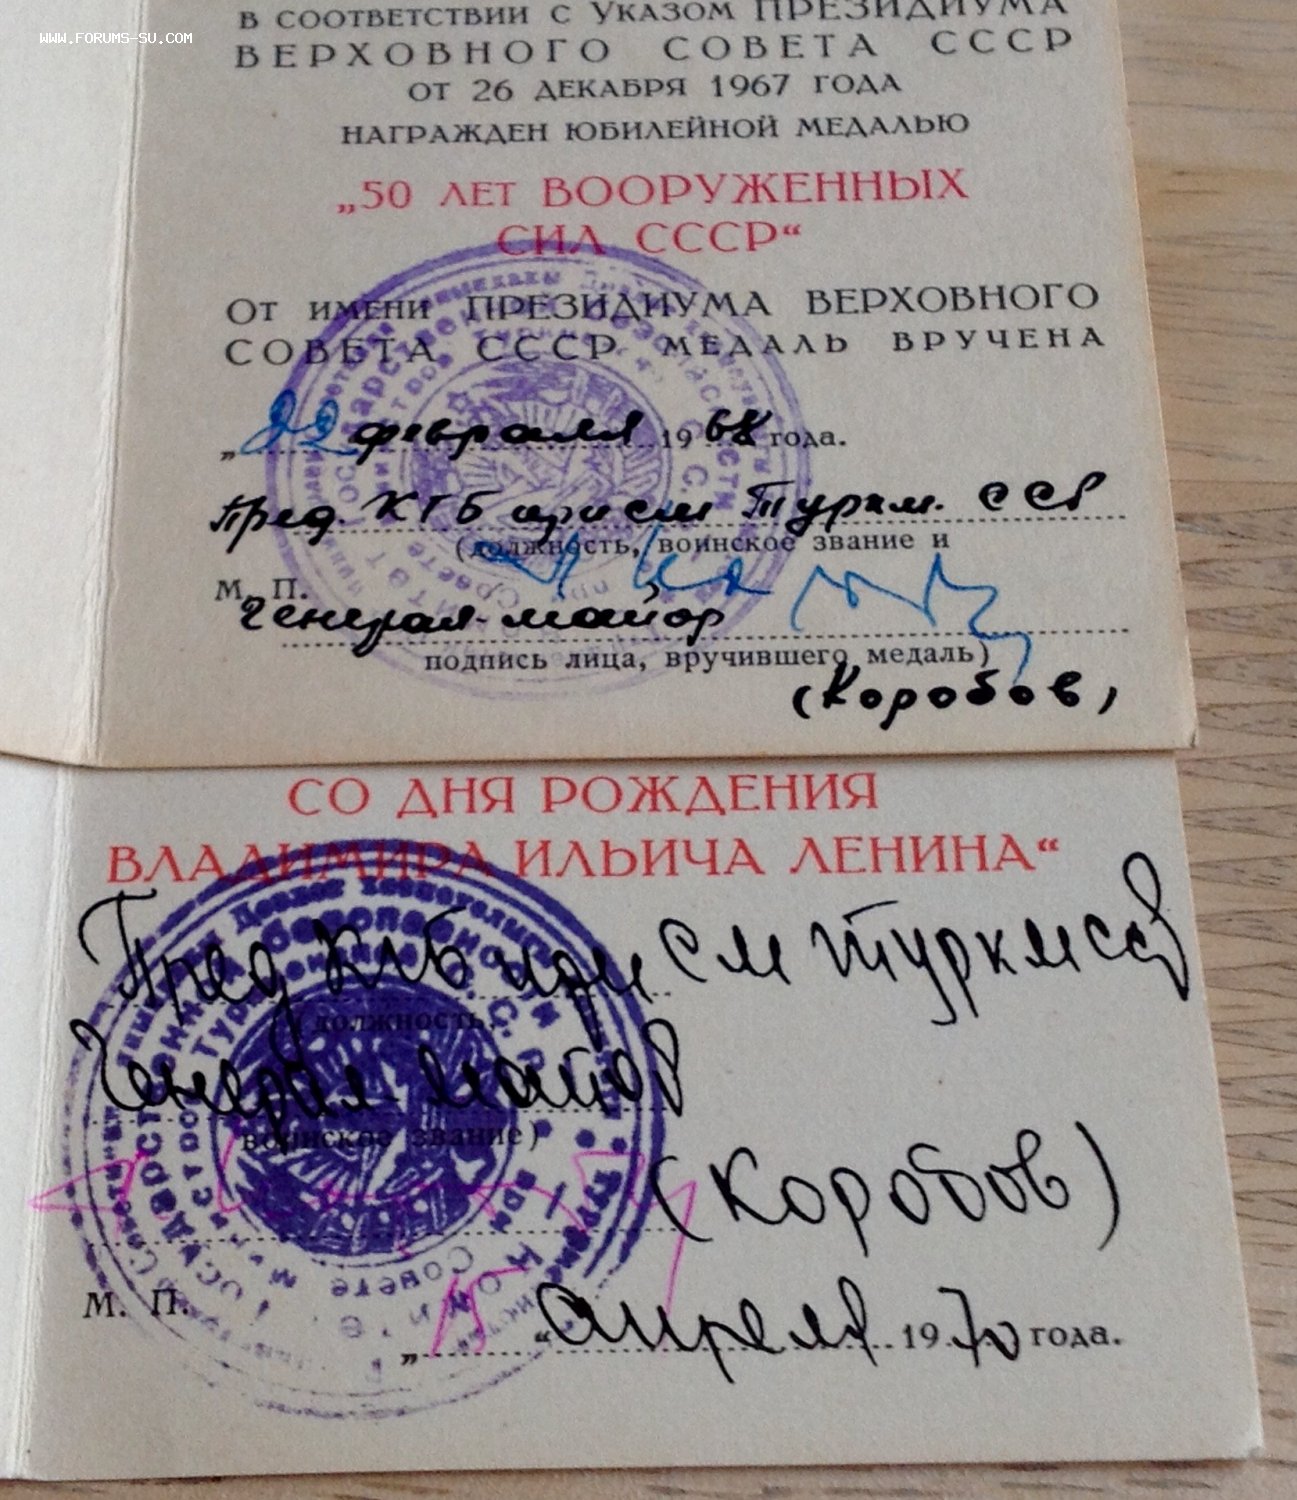 WWW.FORUMS-SU.COM
В СООТВЕТСТВИИ С УКАЗОМ ПРЕЗИДИУМА
ВЕРХОВНОГО СОВЕТА СССР
ОТ 26 ДЕКАБРЯ 1967 ГОДА
НАГРАЖДЕН ЮБИЛЕЙНОЙ МЕДАЛЬЮ
„50 ЛЕТ ВООРУЖЕННЫХ
СИЛ СССР“
ОТ ИМЕНИ ПРЕЗИДИУМА ВЕРХОВНОГО
СОВЕТА СССР МЕДАЛЬ ВРУЧЕНА
„22 февраля 1968 года.
Пред. КГБ при см Туркм. ССР
(должность, воинское звание и
М. П.
Генерал-майор
подпись лица, вручившего медаль)
(Коробов)
СО ДНЯ РОЖДЕНИЯ
ВЛАДИМИРА ИЛЬИЧА ЛЕНИНА“
Пред КГБ при СМ Туркмсср
(должность,
Генерал-майор
воинское звание)
(Коробов)
М. П.
„15“ Апреля 1970 года.